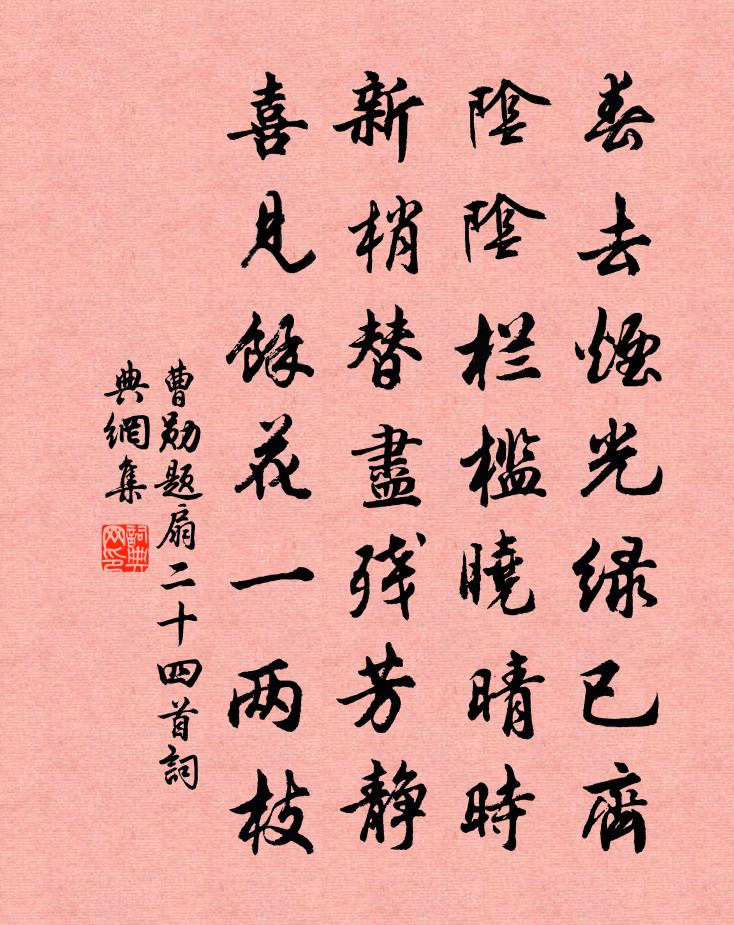 春去煙光緑已齊
陰陰栏檻曉晴時
新梢替盡残芳静
喜見餘花一两枝
曹勛題扇二十四首詞
典網集
詞典网印